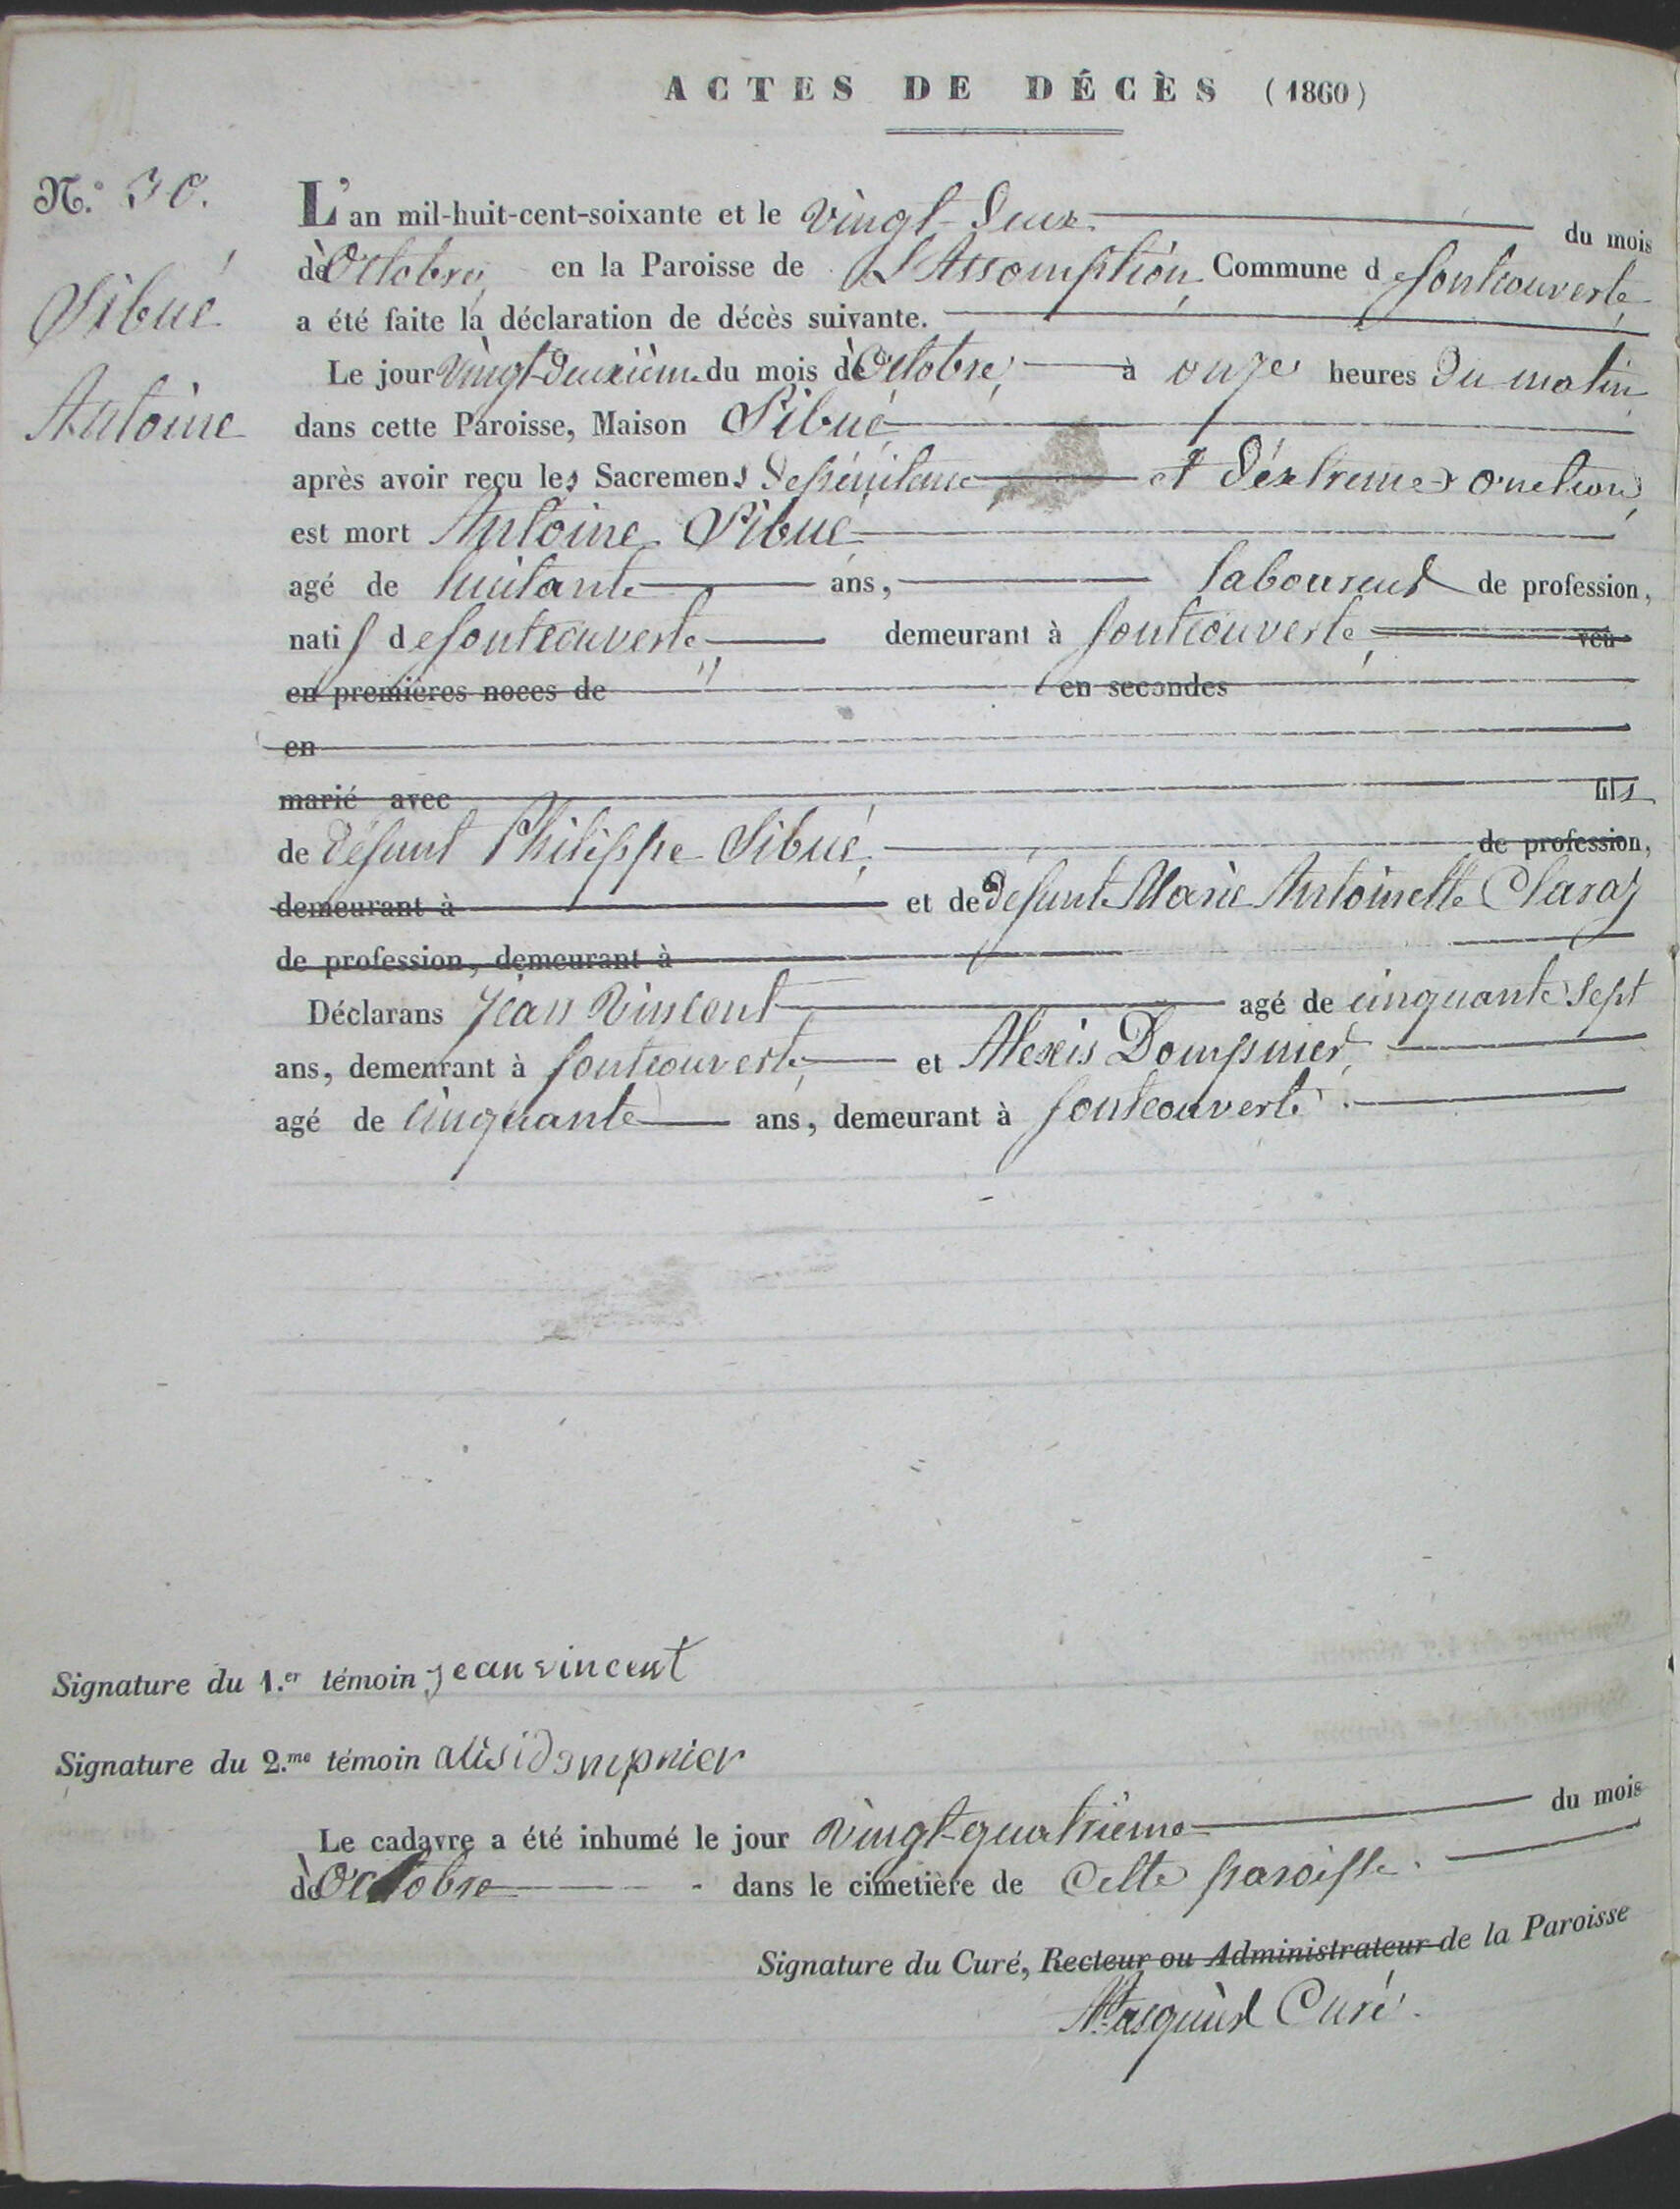 ACTES DE DÉCÈS (1860)
N.º 30.
Sibué
Antoine
L'an mil-huit-cent-soixante et le vingt-deux du mois
d'Octobre, en la Paroisse de L'Assomption Commune de fontcouverte
a été faite la déclaration de décès suivante.
Le jour vingt-deuxième du mois d'Octobre, à onze heures du matin
dans cette Paroisse, Maison Sibué
après avoir reçu les Sacremens de pénitence et d'éxtreme onction,
est mort Antoine Sibué
agé de huitante ans, laboureur de profession,
natif de fontcouverte, demeurant à fontcouverte, veu
en premières noces de " en secondes
en
marié avec fils
de défunt Philippe Sibué, de profession,
demeurant à et de défunte Marie Antoinette Claraz
de profession, demeurant à
Déclarans Jean Vincent agé de cinquante sept
ans, demeurant à fontcouverte, et Alexis Dompnier,
agé de cinquante ans, demeurant à fontcouverte.
Signature du 1.er témoin jean vincent
Signature du 2.me témoin alisi dompnier
Le cadavre a été inhumé le jour vingt-quatrième du mois
d'Octobre - dans le cimetière de cette paroisse.
Signature du Curé, Recteur ou Administrateur de la Paroisse
Curé.